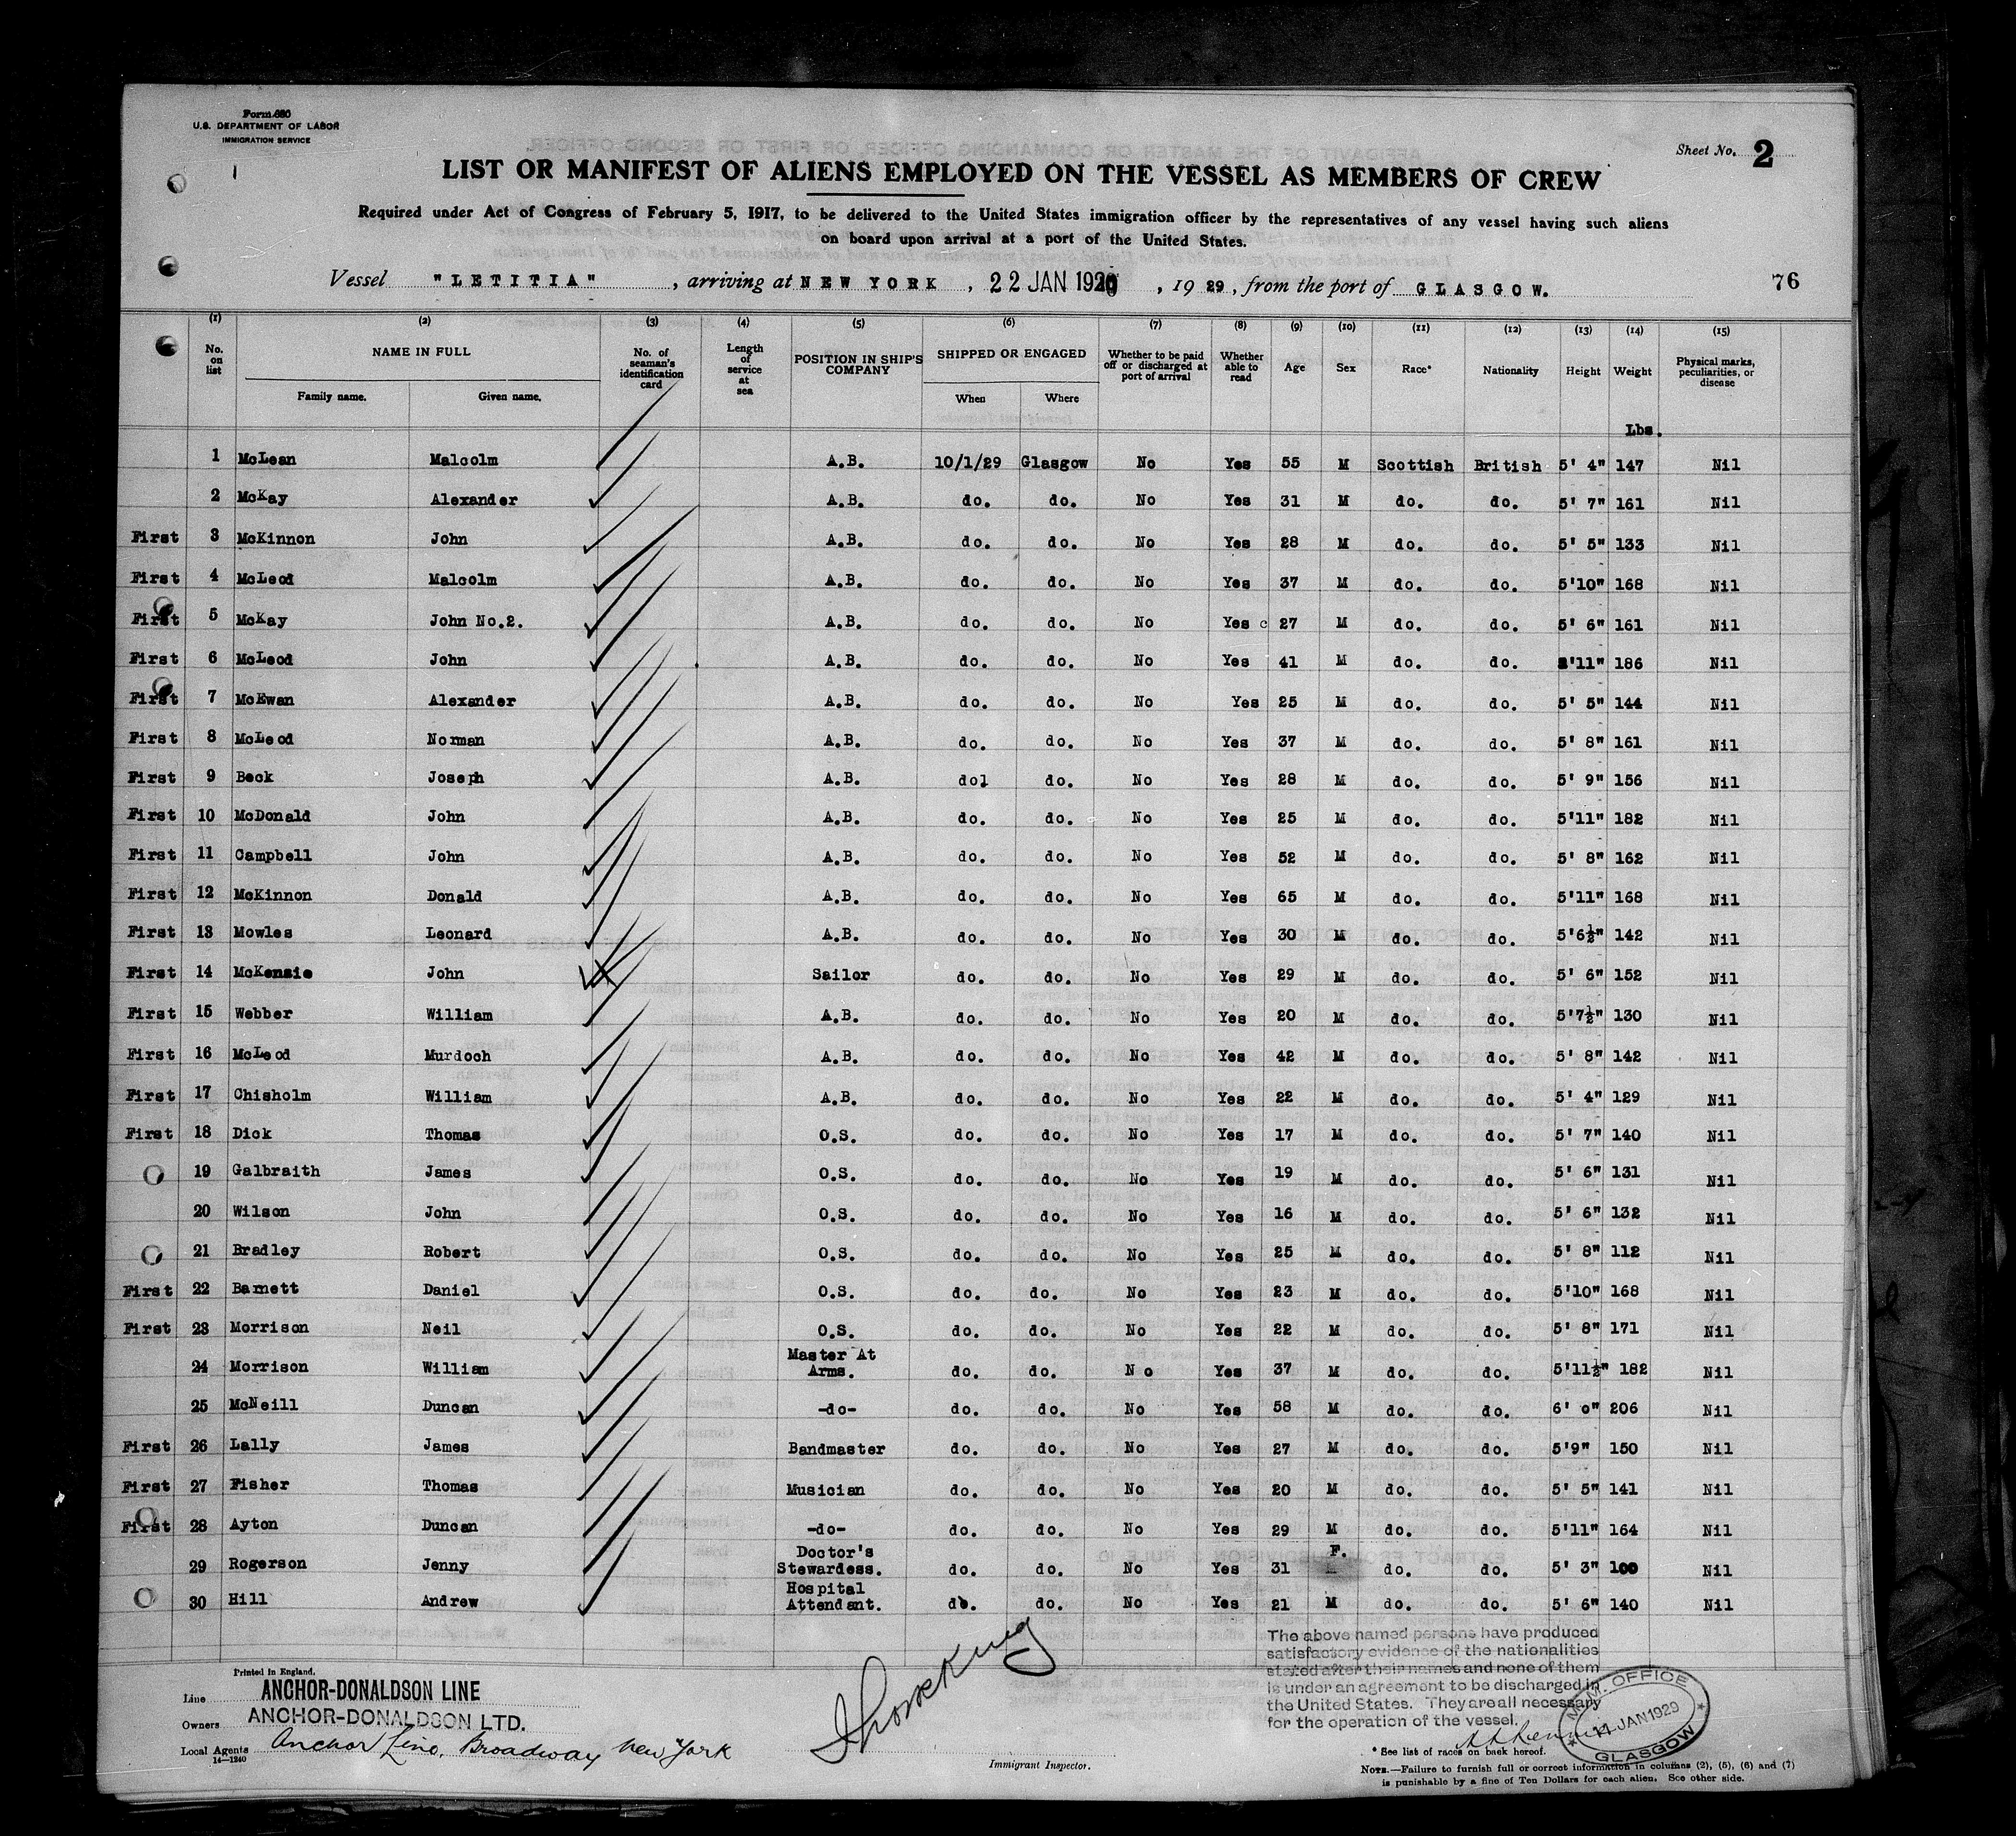 Form 680
U.S. DEPARTMENT OF LABOR
IMMIGRATION SERVICE
Sheet No. 2
LIST OR MANIFEST OF ALIENS EMPLOYED ON THE VESSEL AS MEMBERS OF CREW
Required under Act of Congress of February 5, 1917, to be delivered to the United States immigration officer by the representatives of any vessel having such aliens
on board upon arrival at a port of the United States.
Vessel "LETITIA", arriving at NEW YORK, 22 JAN 1929, 1929, from the port of GLASGOW. 76
(1) (2) (3) (4) (5) (6) (7) (8) (9) (10) (11) (12) (13) (14) (15)
No. on list NAME IN FULL Family name. Given name. No. of seaman's identification card Length of service at sea POSITION IN SHIP'S COMPANY SHIPPED OR ENGAGED When Where Whether to be paid off or discharged at port of arrival Whether able to read Age Sex Race* Nationality Height Weight Physical marks, peculiarities, or disease
Lbs.
1 McLean Malcolm A.B. 10/1/29 Glasgow No Yes 55 M Scottish British 5' 4" 147 Nil
2 McKay Alexander A.B. do. do. No Yes 31 M do. do. 5' 7" 161 Nil
First 3 McKinnon John A.B. do. do. No Yes 28 M do. do. 5' 5" 133 Nil
First 4 McLeod Malcolm A.B. do. do. No Yes 37 M do. do. 5'10" 168 Nil
First 5 McKay John No.2. A.B. do. do. No Yes c 27 M do. do. 5' 6" 161 Nil
First 6 McLeod John A.B. do. do. No Yes 41 M do. do. 5'11" 186 Nil
First 7 McEwan Alexander A.B. do. do. No Yes 25 M do. do. 5' 5" 144 Nil
First 8 McLeod Norman A.B. do. do. No Yes 37 M do. do. 5' 8" 161 Nil
First 9 Beck Joseph A.B. dol do. No Yes 28 M do. do. 5' 9" 156 Nil
First 10 McDonald John A.B. do. do. No Yes 25 M do. do. 5'11" 182 Nil
First 11 Campbell John A.B. do. do. No Yes 52 M do. do. 5' 8" 162 Nil
First 12 McKinnon Donald A.B. do. do. No Yes 65 M do. do. 5'11" 168 Nil
First 13 Mowles Leonard A.B. do. do. No Yes 30 M do. do. 5'6½" 142 Nil
First 14 McKenzie John Sailor do. do. No Yes 29 M do. do. 5' 6" 152 Nil
First 15 Webber William A.B. do. do. No Yes 20 M do. do. 5'7½" 130 Nil
First 16 McLeod Murdoch A.B. do. do. No Yes 42 M do. do. 5' 8" 142 Nil
First 17 Chisholm William A.B. do. do. No Yes 22 M do. do. 5' 4" 129 Nil
First 18 Dick Thomas O.S. do. do. No Yes 17 M do. do. 5' 7" 140 Nil
19 Galbraith James O.S. do. do. No Yes 19 M do. do. 5' 6" 131 Nil
20 Wilson John O.S. do. do. No Yes 16 M do. do. 5' 6" 132 Nil
21 Bradley Robert O.S. do. do. No Yes 25 M do. do. 5' 8" 112 Nil
First 22 Barnett Daniel O.S. do. do. No Yes 23 M do. do. 5'10" 168 Nil
First 23 Morrison Neil O.S. do. do. No Yes 22 M do. do. 5' 8" 171 Nil
24 Morrison William Master At Arms. do. do. No Yes 37 M do. do. 5'11½" 182 Nil
25 McNeill Duncan -do- do. do. No Yes 58 M do. do. 6' 0" 206 Nil
First 26 Lally James Bandmaster do. do. No Yes 27 M do. do. 5'9" 150 Nil
First 27 Fisher Thomas Musician do. do. No Yes 20 M do. do. 5' 5" 141 Nil
First 28 Ayton Duncan -do- do. do. No Yes 29 M do. do. 5'11" 164 Nil
29 Rogerson Jenny Doctor's Stewardess. do. do. No Yes 31 F. do. do. 5' 3" 100 Nil
30 Hill Andrew Hospital Attendant. do. do. No Yes 21 M do. do. 5' 6" 140 Nil
The above named persons have produced
satisfactory evidence of the nationalities
stated after their names and none of them
is under an agreement to be discharged in
the United States. They are all necessary
for the operation of the vessel.
IMM. OFFICE
14 JAN 1929
GLASGOW
Printed in England.
Line ANCHOR-DONALDSON LINE
Owners ANCHOR-DONALDSON LTD.
Local Agents Anchor Line, Broadway New York
14—1240
Immigrant Inspector.
* See list of races on back hereof.
NOTE.—Failure to furnish full or correct information in columns (2), (5), (6) and (7)
is punishable by a fine of Ten Dollars for each alien. See other side.